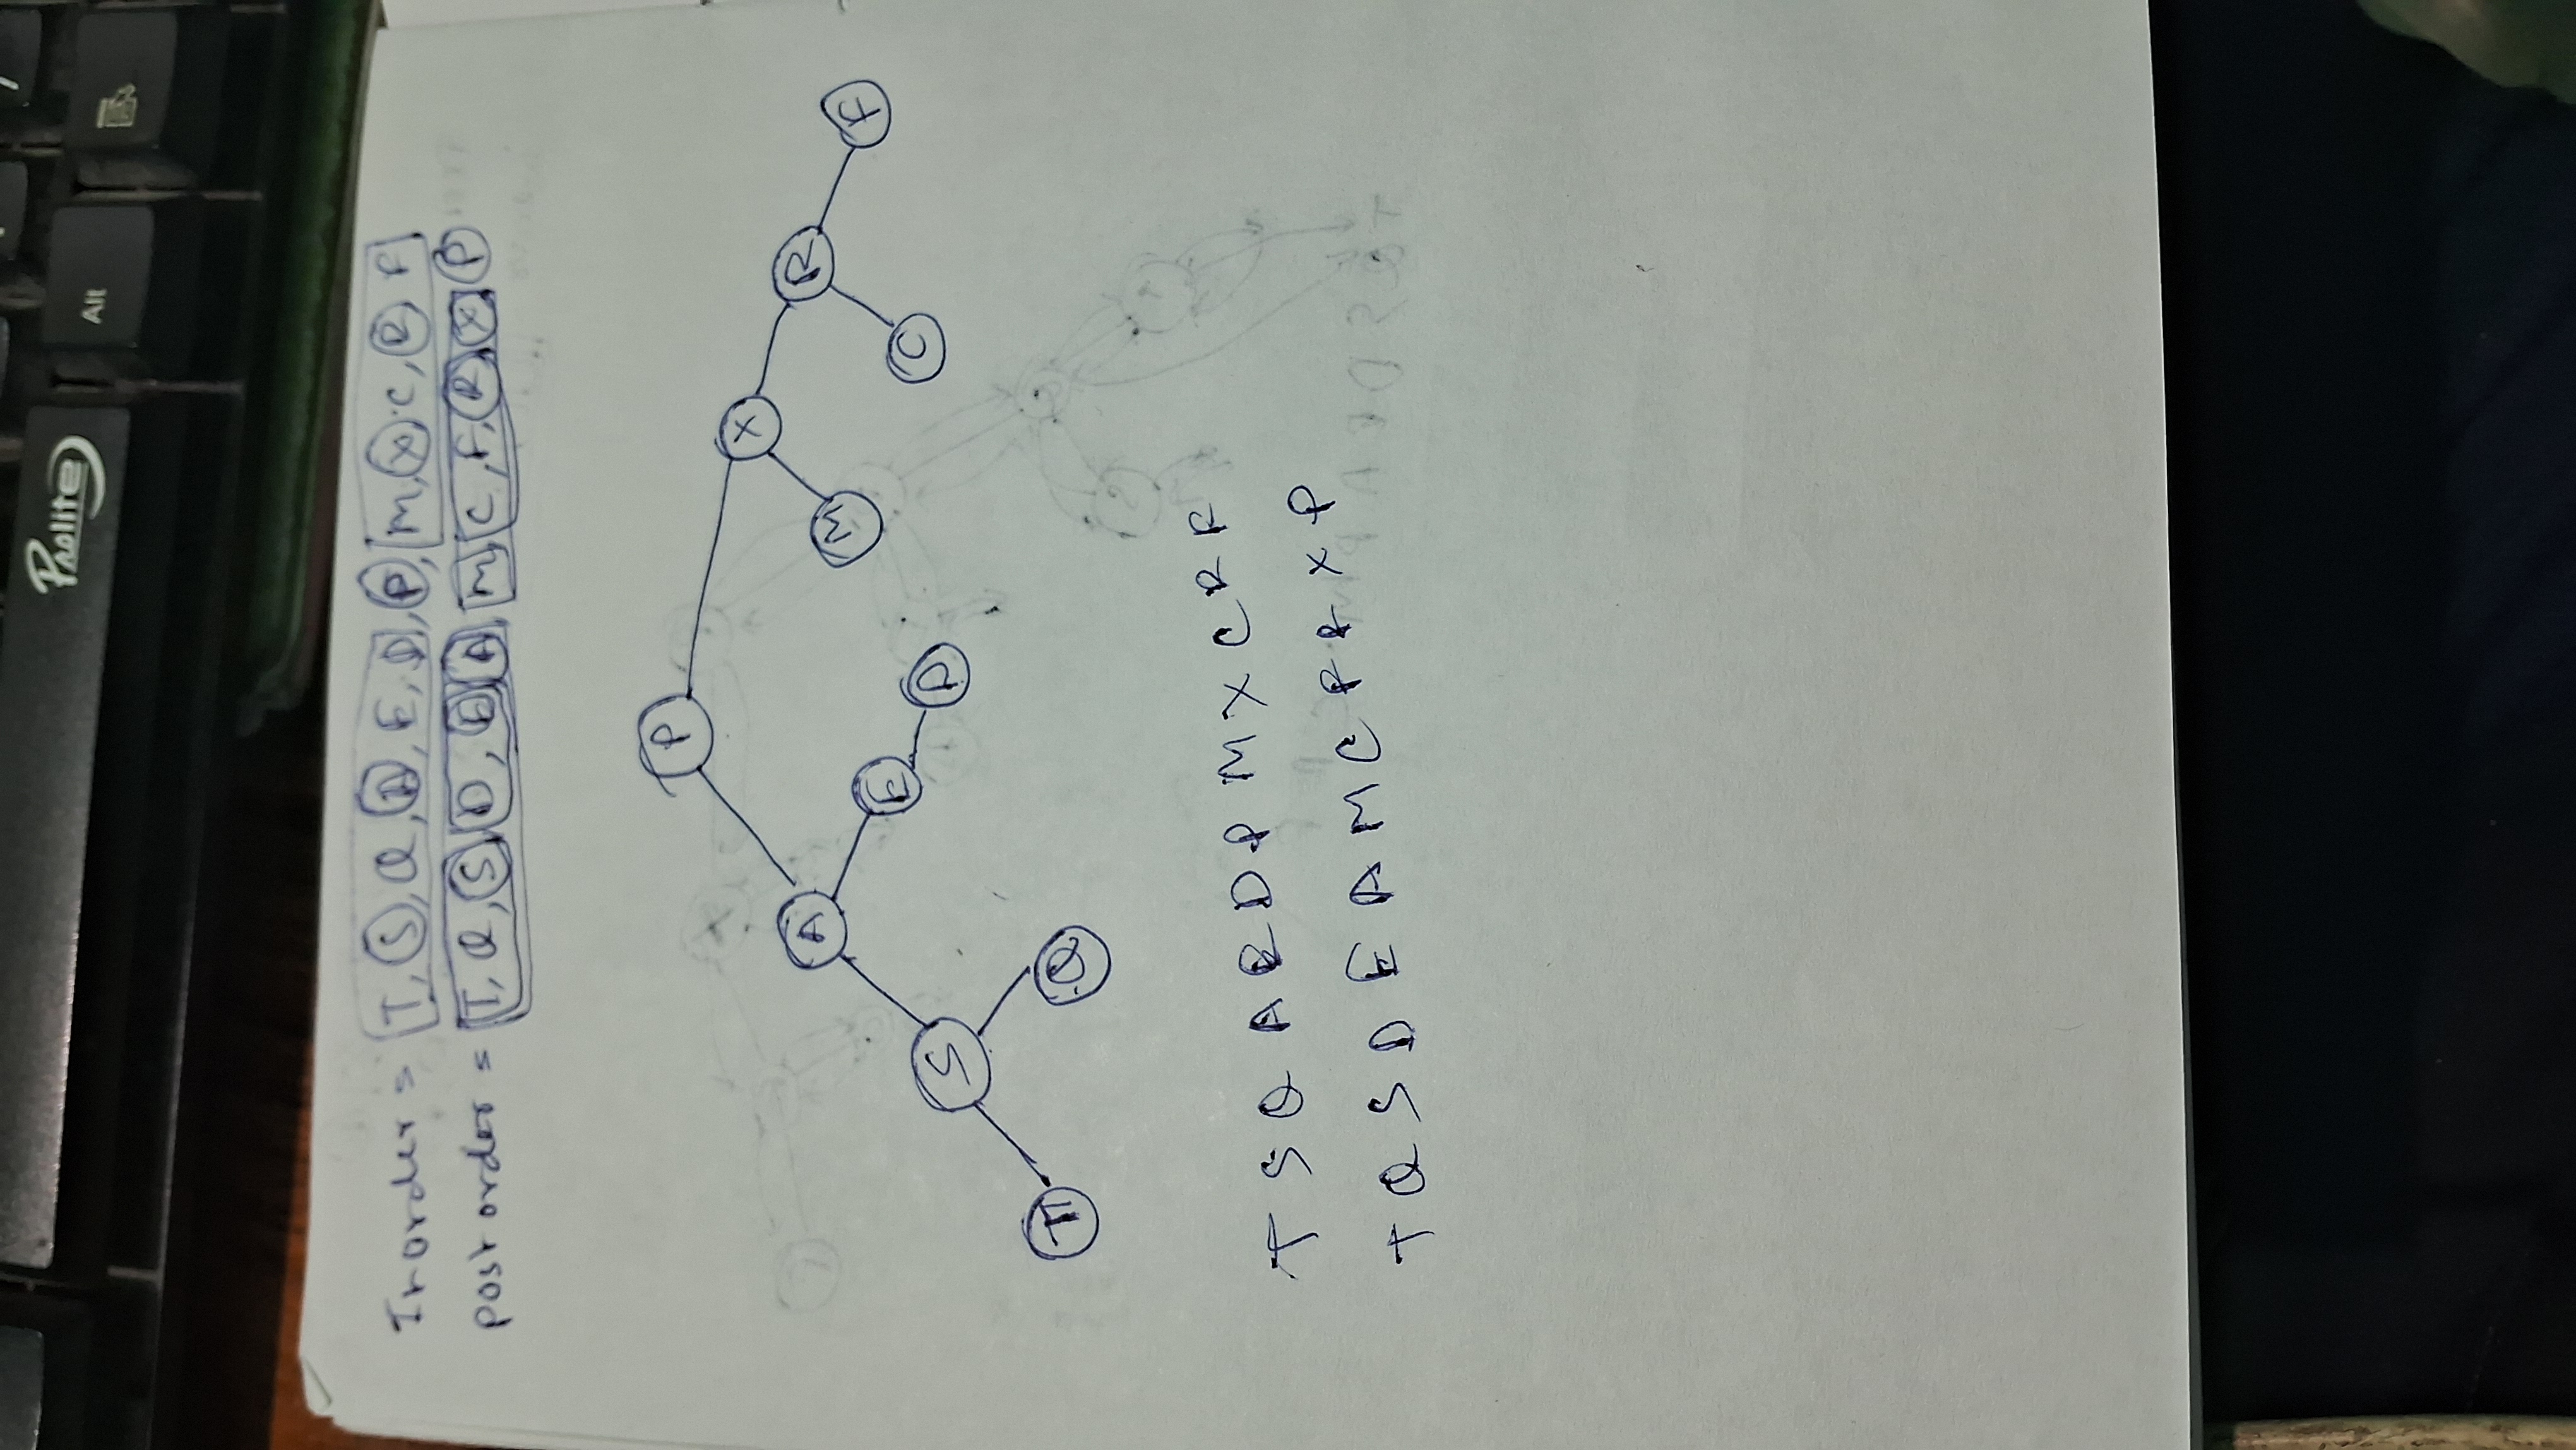 Prolite
Alt
Inorder = T, S, Q, A, E, D, P, M, X, C, R, F
post order = T, Q, S, D, E, A, M, C, F, R, X, P
P
X
A
R
M
E
F
C
S
D
T
Q
T S Q A E D P M X C R F
T Q S D E A M C F R X P